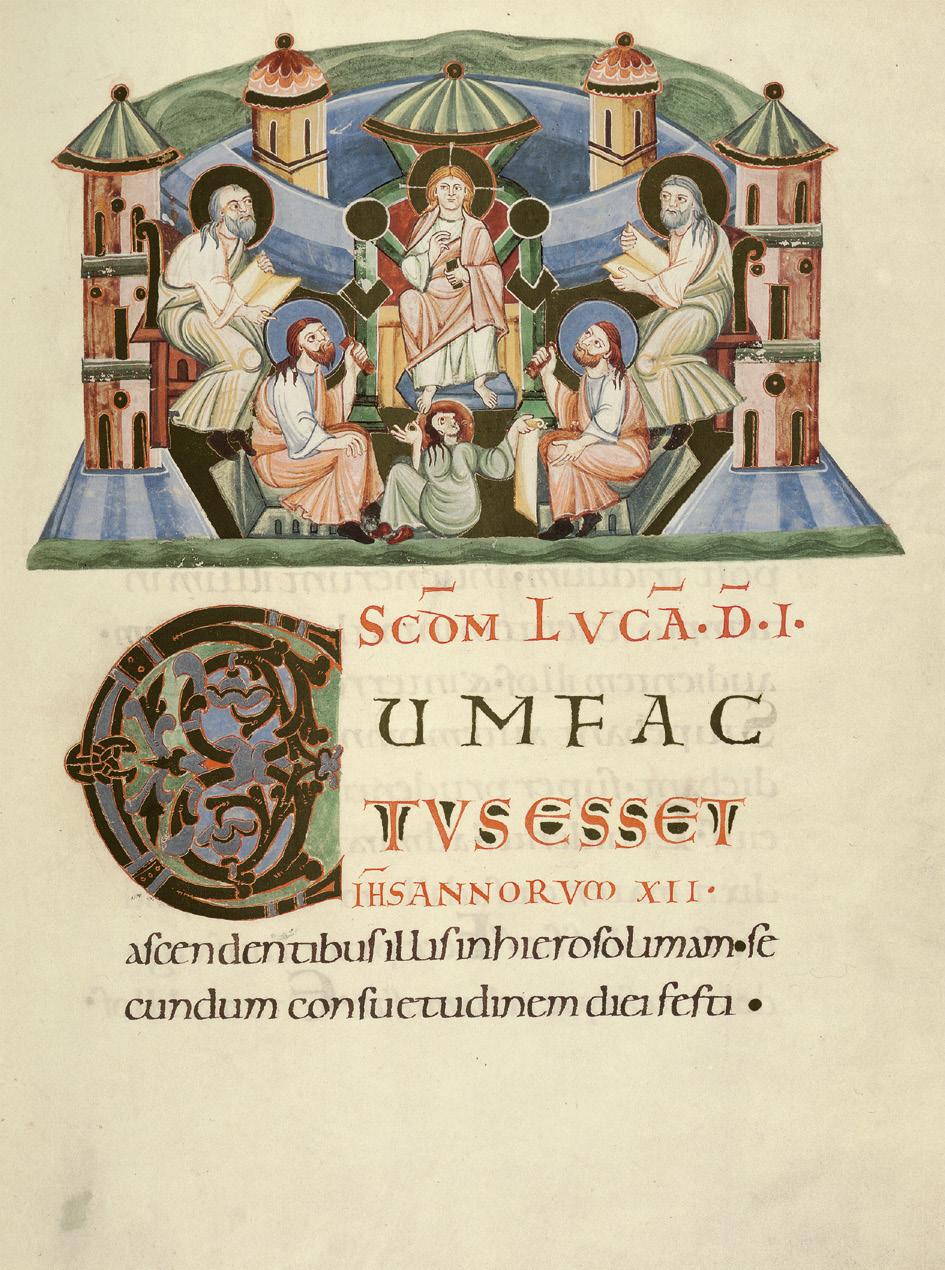 SCDM LVCA·D·I·
CUMFAC
TVSESSET
IHSANNORVM XII·
ascendentibusillisinhierosolimam·se
cundum consuetudinem diei festi ·